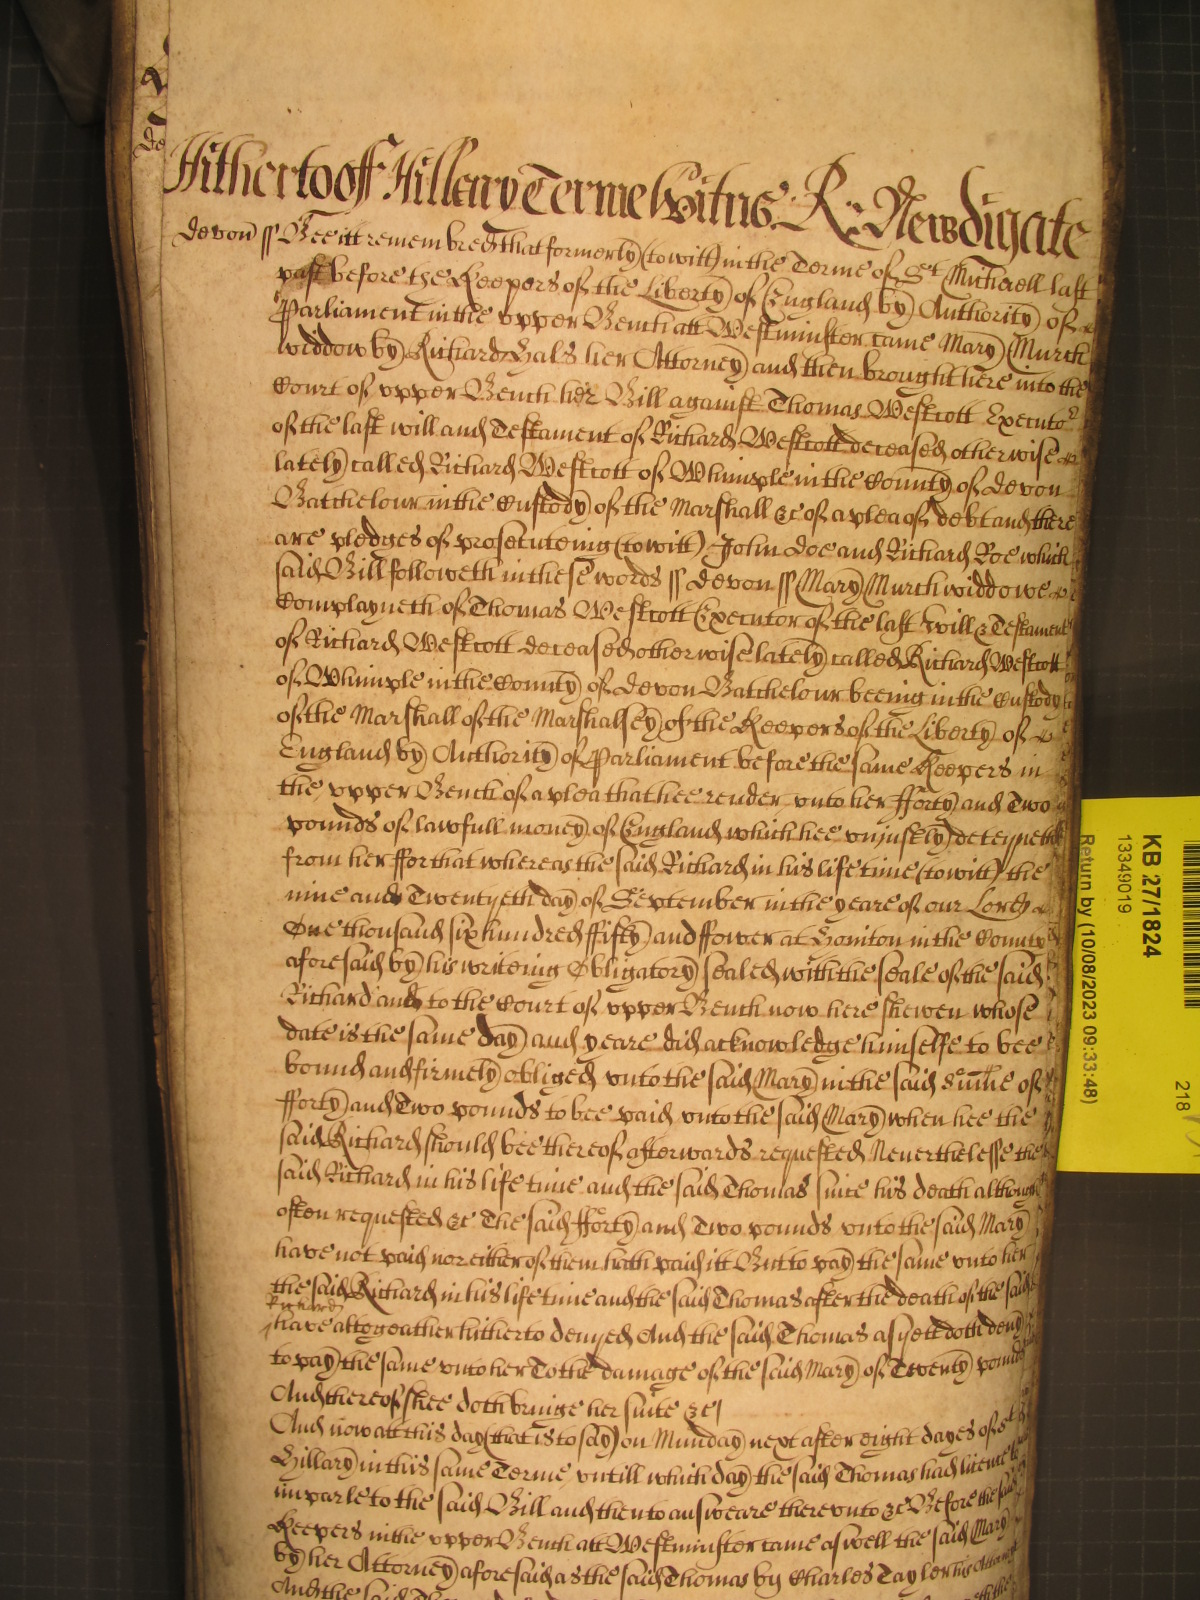 Hitherto off Hillary Terme Witns R: Newdigate
Devon ss Bee itt remembred that formerly (to witt) in the Terme of St Michaell last
past before the Keepers of the Liberty of England by Authority of
Parliament in the upper Bench att Westminster came Mary Murch
widdow by Richard Hals her Attorney and then brought here into the
Court of upper Bench her Bill against Thomas Westcott Executor
of the last will and Testament of Richard Westcott deceased otherwise
lately called Richard Westcott of Whimple in the County of Devon
Batchelour in the Custody of the Marshall &c of a plea of debt and there
are pledges of prosecuteing (to witt) John Doe and Richard Roe which
said Bill followeth in these words ss Devon ss Mary Murch widdowe
Complayneth of Thomas Westcott Executor of the last Will & Testament
of Richard Westcott deceased otherwise lately called Richard Westcott
of Whimple in the County of Devon Batchelour beeing in the Custody
of the Marshall of the Marshalsey of the Keepers of the Liberty of
England by Authority of Parliament before the same Keepers in
the upper Bench of a plea that hee render unto her fforty and Two
pounds of lawfull money of England which hee unjustly deteyneth
from her ffor that whereas the said Richard in his life time (to witt) the
nine and Twentyeth day of September in the yeare of our Lord
One thousand six hundred ffifty and ffower at Honiton in the County
aforesaid by his writeing Obligatory sealed with the seale of the said
Richard and to the Court of upper Bench now here shewen whose
date is the same day and yeare did acknowledge himselfe to bee
bound and firmely obliged unto the said Mary in the said summe of
fforty and Two pounds to bee paid unto the said Mary when hee the
said Richard should bee thereof afterwards requested Neverthelesse the
said Richard in his life time and the said Thomas since his death although
often requested &c The said fforty and Two pounds unto the said Mary
have not paid nor either of them hath paid itt But to pay the same unto her
the said Richard in his life time and the said Thomas after the death of the said
Richard
have altogeather hitherto denyed And the said Thomas as yett doth deny
to pay the same unto her To the damage of the said Mary of Twenty pounds
And thereof shee doth bringe her suite &c
And now att this day (that is to say) on Munday next after eight dayes of St
Hillary in this same Terme untill which day the said Thomas had licence to
imparle to the said Bill and then to answeare thereunto &c Before the said
Keepers in the upper Bench att Westminster came aswell the said Mary
by her Attorney aforesaid as the said Thomas by Charles Tayler his Attorney
And the said
KB 27/1824
13349019
Return by (10/08/2023 09:33:48)
218